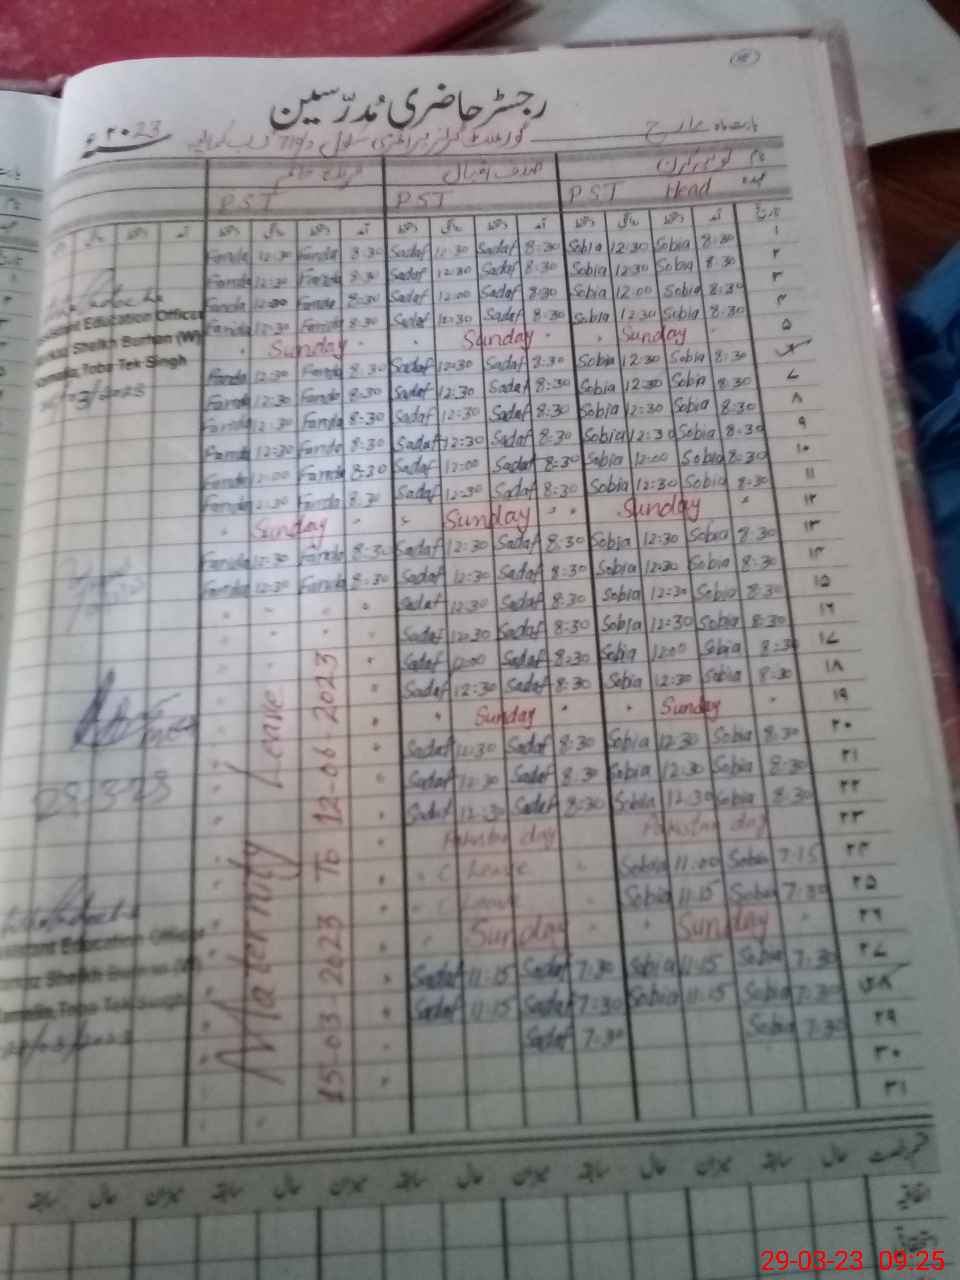 رجسٹر حاضری مُدرّسین
بابت ماہ مارچ گورنمنٹ گرلز پرائمری سکول ۲۰23ء
نام
عہدہ PST Head PST PST
تاریخ آمد دستخط روانگی دستخط آمد دستخط روانگی دستخط آمد دستخط روانگی دستخط
۱ 8:30 Sobia 12:30 Sobia 8:30 Sadaf 12:30 Sadaf 8:30 Farida 12:30 Farida
۲ 8:30 Sobia 12:30 Sobia 8:30 Sadaf 12:30 Sadaf 8:30 Farida 12:30 Farida
۳ 8:30 Sobia 12:00 Sobia 8:30 Sadaf 12:00 Sadaf 8:30 Farida 12:00 Farida
۴ 8:30 Sobia 12:30 Sobia 8:30 Sadaf 12:30 Sadaf 8:30 Farida 12:30 Farida
۵ Sunday Sunday Sunday
8:30 Sobia 12:30 Sobia 8:30 Sadaf 12:30 Sadaf 8:30 Farida 12:30 Farida
۷ 8:30 Sobia 12:30 Sobia 8:30 Sadaf 12:30 Sadaf 8:30 Farida 12:30 Farida
۸ 8:30 Sobia 12:30 Sobia 8:30 Sadaf 12:30 Sadaf 8:30 Farida 12:30 Farida
۹ 8:30 Sobia 12:30 Sobia 8:30 Sadaf 12:30 Sadaf 8:30 Farida 12:30 Farida
۱۰ 8:30 Sobia 12:00 Sobia 8:30 Sadaf 12:00 Sadaf 8:30 Farida 12:00 Farida
۱۱ 8:30 Sobia 12:30 Sobia 8:30 Sadaf 12:30 Sadaf 8:30 Farida 12:30 Farida
۱۲ Sunday Sunday Sunday
۱۳ 8:30 Sobia 12:30 Sobia 8:30 Sadaf 12:30 Sadaf 8:30 Farida 12:30 Farida
۱۴ 8:30 Sobia 12:30 Sobia 8:30 Sadaf 12:30 Sadaf 8:30 Farida 12:30 Farida
۱۵ 8:30 Sobia 12:30 Sobia 8:30 Sadaf 12:30 Sadaf
۱۶ 8:30 Sobia 12:30 Sobia 8:30 Sadaf 12:30 Sadaf
۱۷ 8:30 Sobia 12:00 Sobia 8:30 Sadaf 12:00 Sadaf
۱۸ 8:30 Sobia 12:30 Sobia 8:30 Sadaf 12:30 Sadaf
۱۹ Sunday Sunday
۲۰ 8:30 Sobia 12:30 Sobia 8:30 Sadaf 12:30 Sadaf
۲۱ 8:30 Sobia 12:30 Sobia 8:30 Sadaf 12:30 Sadaf
۲۲ 8:30 Sobia 12:30 Sobia 8:30 Sadaf 12:30 Sadaf
۲۳ Pakistan day Pakistan day
۲۴ 7:15 Sobia 11:00 Sobia C Leave
۲۵ 7:30 Sobia 11:15 Sobia C Leave
۲۶ Sunday Sunday
۲۷ 7:30 Sobia 11:15 Sobia 7:30 Sadaf 11:15 Sadaf
۲۸ 7:30 Sobia 11:15 Sobia 7:30 Sadaf 11:15 Sadaf
۲۹ 7:30 Sobia 7:30 Sadaf
۳۰
۳۱
Maternity Leave
15-03-2023 To 12-06-2023
Education Officer
Sheikh Burhan (W)
Kamalia, Toba Tek Singh
28-3-23
Education Officer
Sheikh Burhan (W)
Toba Tek Singh
حال سابقہ میزان حال سابقہ میزان حال سابقہ میزان حال سابقہ
29-03-23 09:25